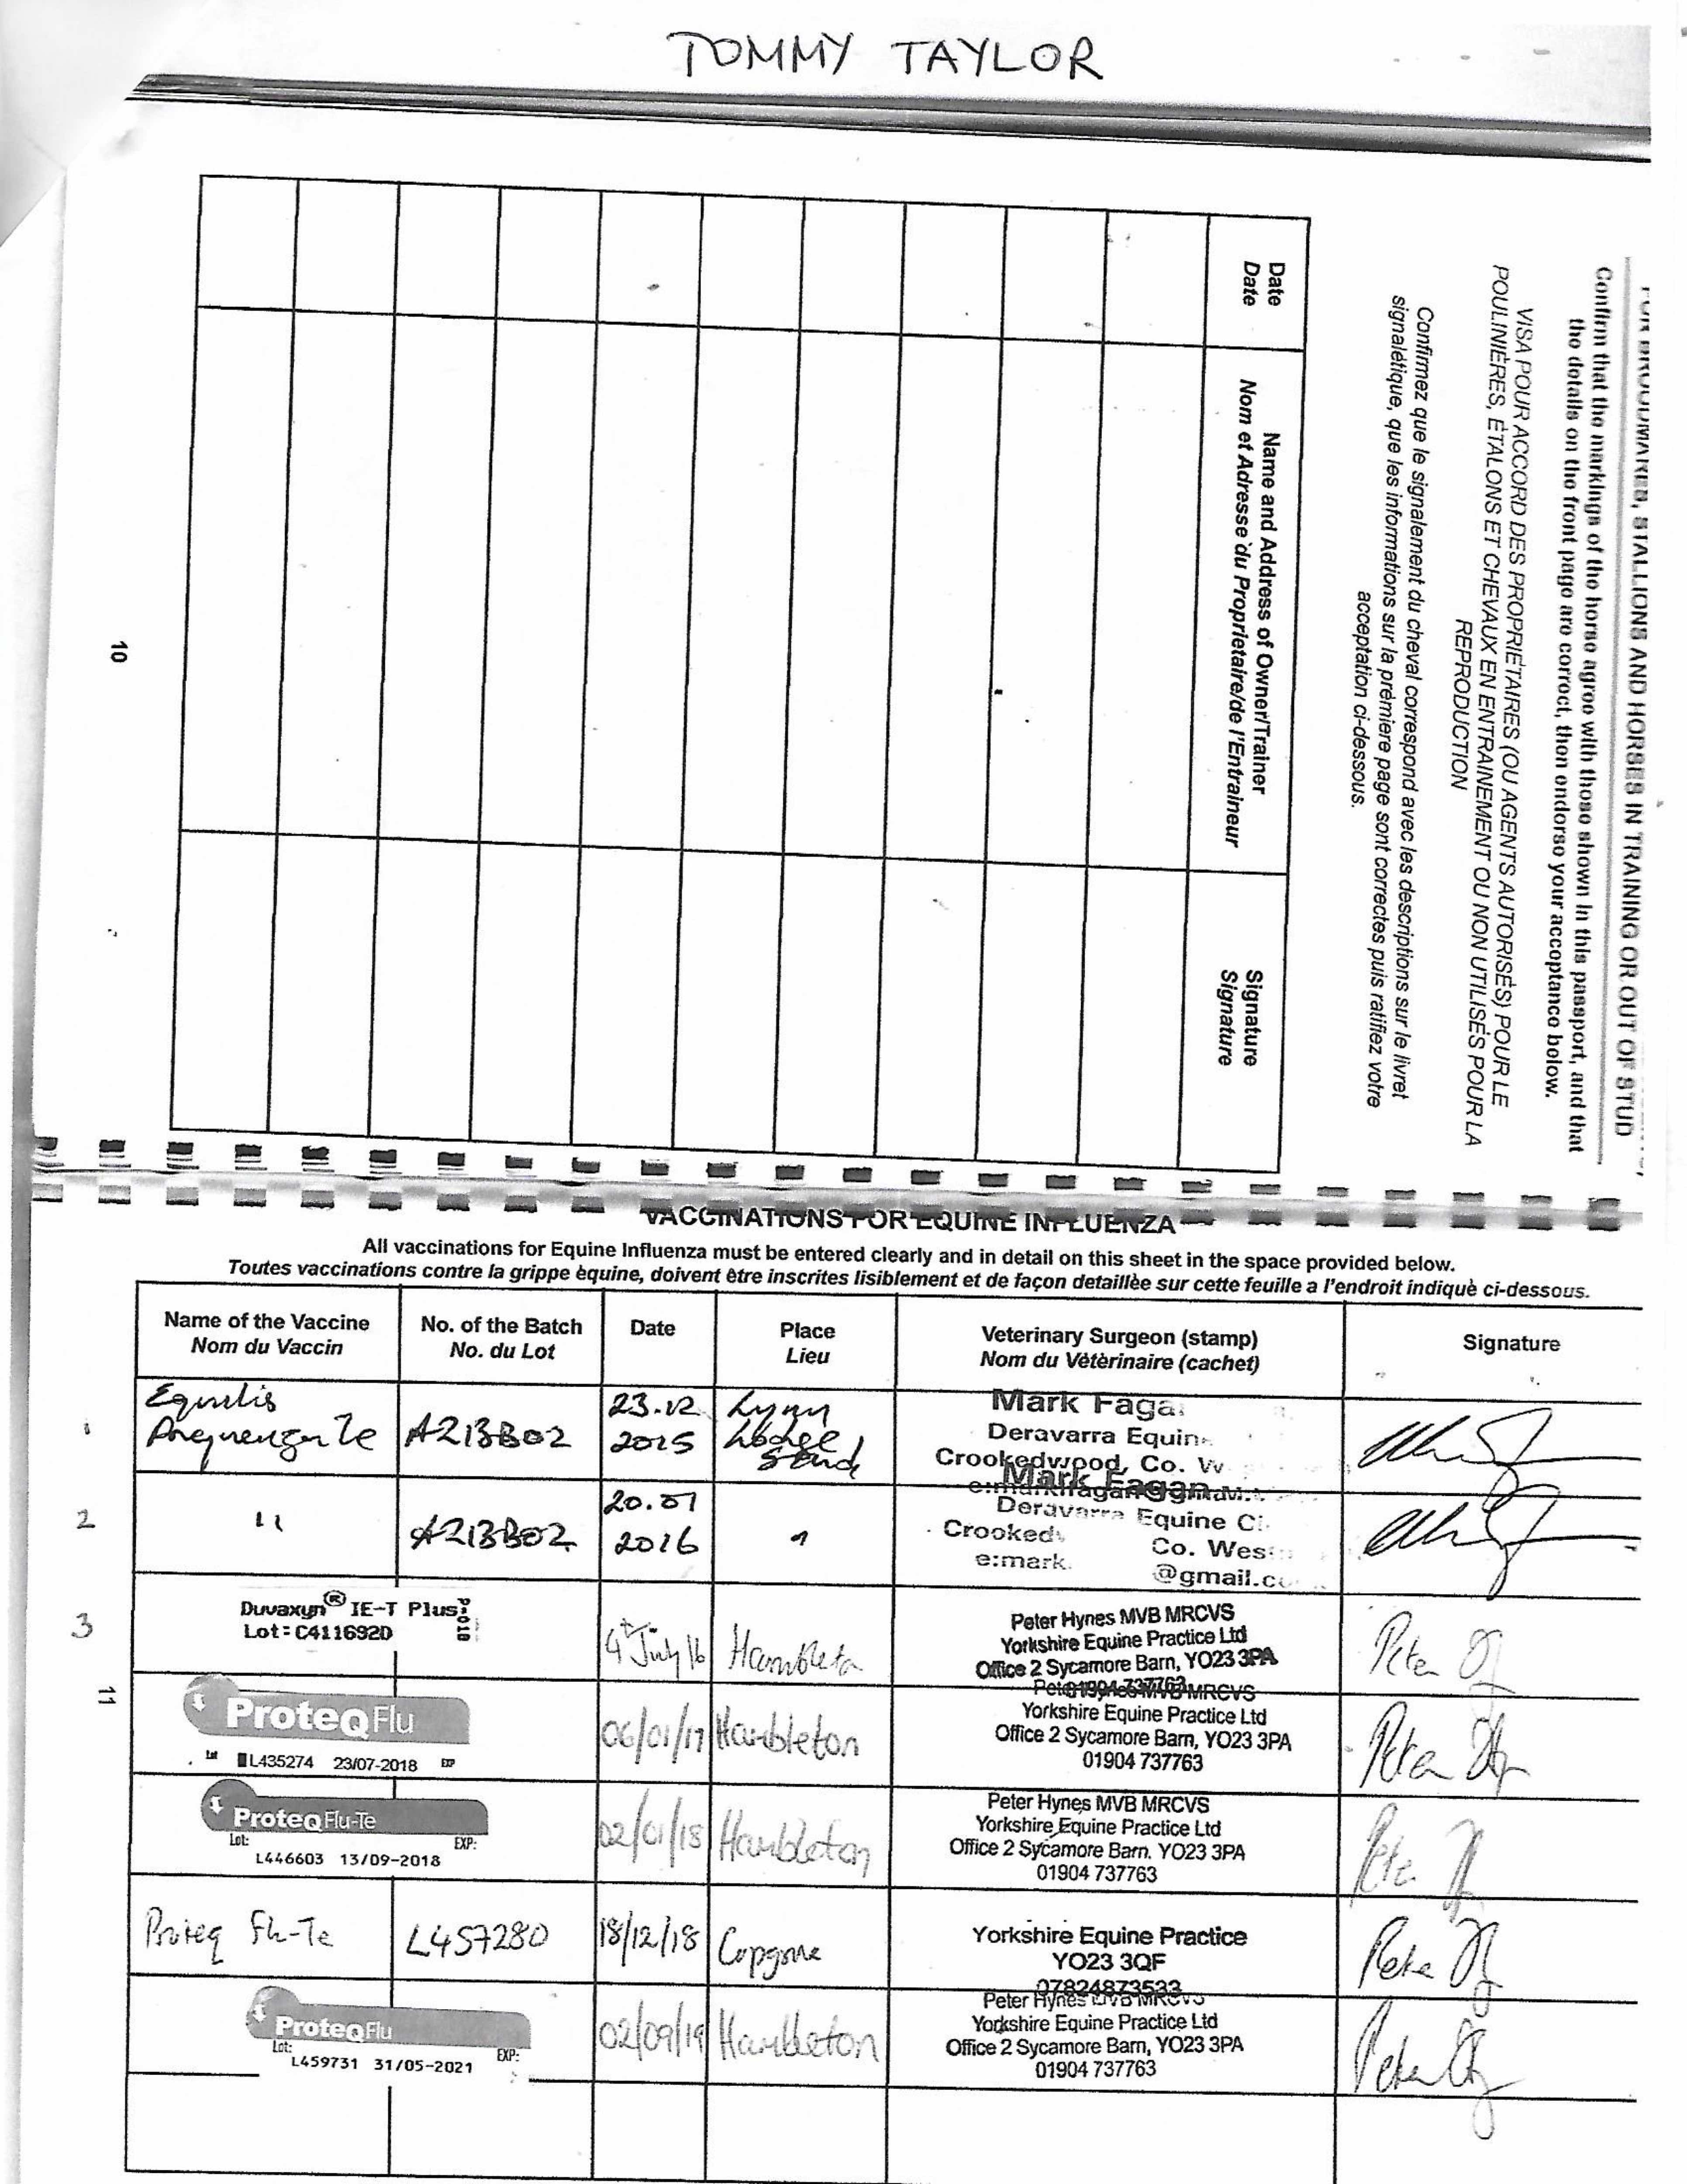 TOMMY TAYLOR
STALLIONS AND HORSES IN TRAINING OR OUT OF STUD
Confirm that the markings of the horse agree with those shown in this passport, and that
the details on the front page are correct, then endorse your acceptance below.
VISA POUR ACCORD DES PROPRIÉTAIRES (OU AGENTS AUTORISÉS) POUR LE
POULINIÈRES, ÉTALONS ET CHEVAUX EN ENTRAINEMENT OU NON UTILISÉS POUR LA
REPRODUCTION
Confirmez que le signalement du cheval correspond avec les descriptions sur le livret
signalétique, que les informations sur la prémiere page sont correctes puis ratifiez votre
acceptation ci-dessous.
Date
Date
Name and Address of Owner/Trainer
Nom et Adresse du Proprietaire/de l'Entraineur
Signature
Signature
10
VACCINATIONS FOR EQUINE INFLUENZA
All vaccinations for Equine Influenza must be entered clearly and in detail on this sheet in the space provided below.
Toutes vaccinations contre la grippe èquine, doivent être inscrites lisiblement et de façon detaillèe sur cette feuille a l'endroit indiquè ci-dessous.
Name of the Vaccine
Nom du Vaccin
No. of the Batch
No. du Lot
Date
Place
Lieu
Veterinary Surgeon (stamp)
Nom du Vètèrinaire (cachet)
Signature
1
A213B02
23.12
2015
Lynn
Lodge
Stud
Mark Faga
Deravarra Equin
Crookedwood, Co. W
2
"
A213B02
20.01
2016
"
Mark Fagan
Deravarra Equine Cl
Crooked
Co. West
e:mark
@gmail.c
3
Duvaxyn® IE-T Plus
Lot: C411692D
4th July 16
Hambleton
Peter Hynes MVB MRCVS
Yorkshire Equine Practice Ltd
Office 2 Sycamore Barn, YO23 3PA
01904 737763
Peter
11
ProteqFlu
Lot L435274 23/07-2018 EXP
06/01/17
Hambleton
MRCVS
Yorkshire Equine Practice Ltd
Office 2 Sycamore Barn, YO23 3PA
01904 737763
Peter
ProteqFlu-Te
Lot: EXP:
L446603 13/09-2018
02/01/18
Hambleton
Peter Hynes MVB MRCVS
Yorkshire Equine Practice Ltd
Office 2 Sycamore Barn. YO23 3PA
01904 737763
Peter
Proteq Flu-Te
L457280
18/12/18
Yorkshire Equine Practice
YO23 3QF
07824873533
Peter
ProteqFlu
Lot: EXP:
L459731 31/05-2021
02/09/19
Hambleton
Peter Hynes MVB MRCVS
Yorkshire Equine Practice Ltd
Office 2 Sycamore Barn, YO23 3PA
01904 737763
Peter